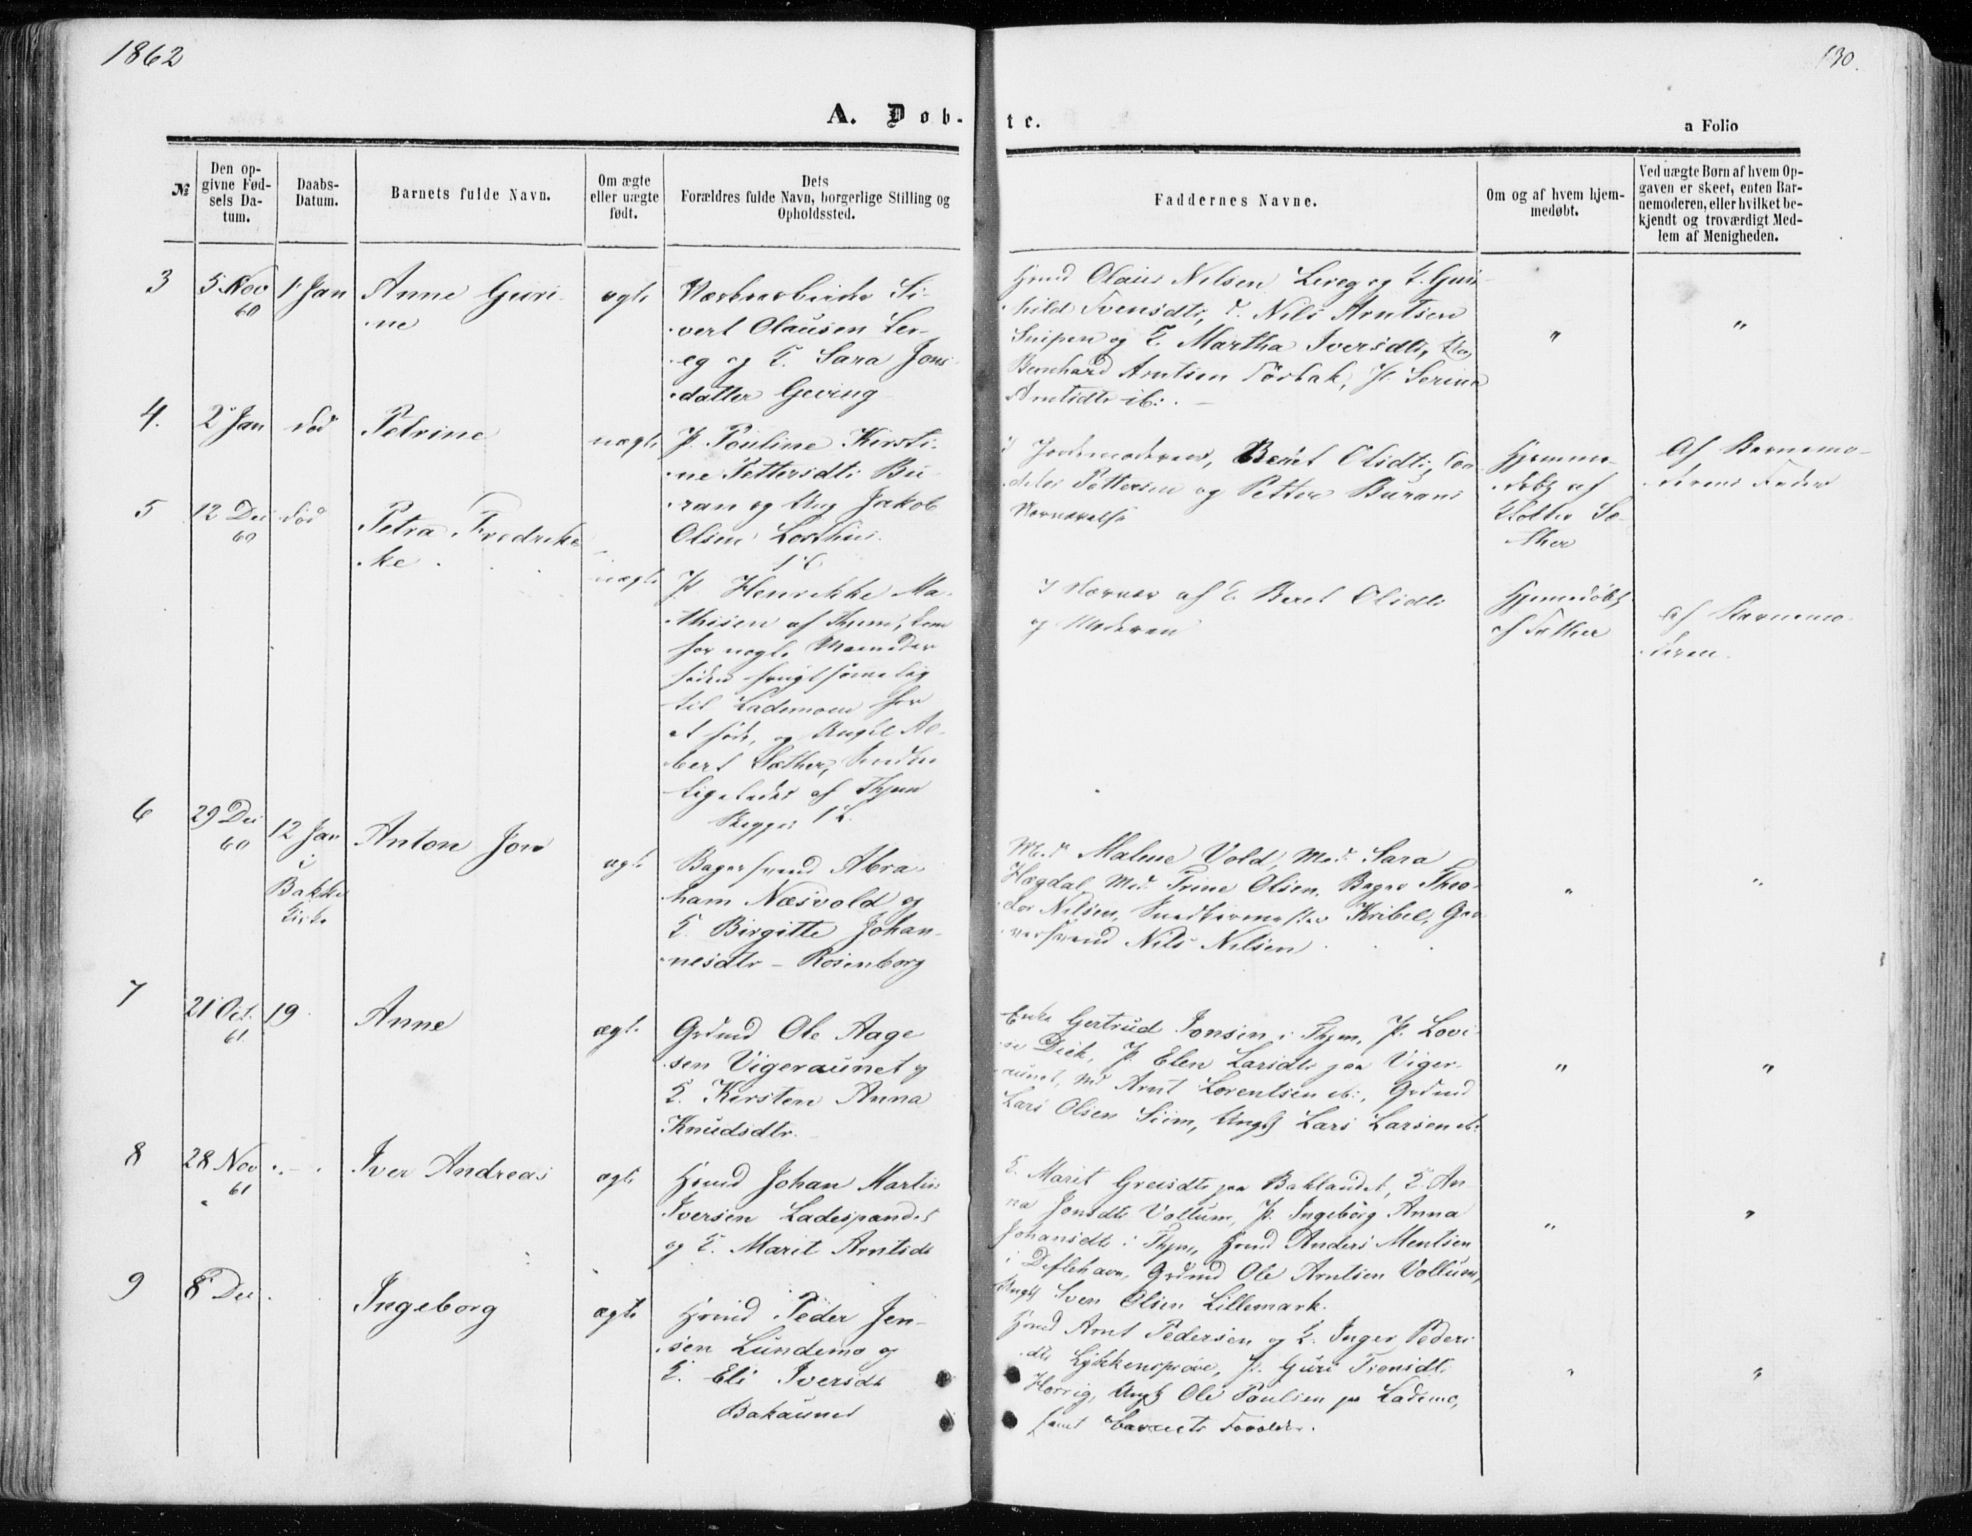 1862
130.
A. Døb-
te.
a Folio
№
Den op-
givne Fød-
sels Da-
tum.
Daabs-
Datum.
Barnets fulde Navn.
Om ægte
eller uægte
født.
Dets
Forældres fulde Navn, borgerlige Stilling og
Opholdssted.
Faddernes Navne.
Om og af hvem hjem-
medøbt.
Ved uægte Børn af hvem Op-
gaven er skeet, enten Bar-
nemoderen, eller hvilket be-
kjendt og troværdigt Med-
lem af Menigheden.
3
5 Nov
60
1 Jan
Anne Guri-
ne
ægte
Si-
vert Olausen Ler-
eg og K. Sara Jons
datter Geving
Olaus Nilsen Lereg og K. Gun-
hild Svensdtr, Nils Arntsen
Snipen og K. Martha Iversdtr,
Bernhard Arntsen P. Serine
Arntsdtr ib.
"
"
4.
2 Jan
død
Petrine
uægte
P. Pauline Kirsti-
ne Pettersdtr Bu-
ran og Ung Jakob
Olsen
Jordemoderen, Beret Olsdtr,
Pettersen og Petter Burans
Hjemme-
døbt af
Sæ-
ther
Af Barnemo-
derens Fader
5
12 Dec
60
død
Petra Fredrikke
ke
uægte
P. Henrikke Ma-
thisen af Thjem,
for nogle Maaneder
siden
til Lademoen for
at føde, og Ungk Al-
bert Sæther,
ligeledes af Thjem
Begges 1ste
I Nærvær af K. Beret Olsdtr
og Moderen
Hjemmedøbt
af
Af Barnemo-
deren.
6
29 Dec
60
12 Jan
i
Bakke
Kirke
Anton Jon
ægte
Bagersvend Abra-
ham Næsvold og
K. Birgitte Johan-
nesdtr - Rosenborg
Mad. Malene Vold, Mad. Sara
Hægdal, Mad. Trine Olsen, Bager Theo-
dor Nilsen, Snedkermester Kribel,
Nils Nilsen
"
"
7
21 Oct.
61
19
Anne
ægte
Grdmd Ole Aage
sen Vigeraunet og
K. Kirsten Anna
Knudsdtr.
Enke Gertrud Jonsen i Thjem, P. Lovi-
se Dick, P. Elen Larsdtr paa Viger-
aunet, Md Arnt Lorentsen ib., Grdmd
Lars Olsen Siim, Ungk Lars Larsen ib.
"
"
8
28 Nov
61
" - "
Iver Andreas
ægte
Hsmd Johan Martin
Iversen Ladespandet
og K. Marit Arntsdtr
K. Marit paa Baklandet, K. An-
na Jonsdtr Vollum, P. Ingeborg Anna
Johansdtr i Thjem, Hsmd Anders Mentsen
i Grdmd Ole Arntsen Vollum,
Ungk Sven Olsen Lillemark.
"
"
9
8 Dec
Ingeborg
ægte
Hsmd Peder Jen-
sen Lundemo og
K. Eli Iversdtr
Bakaunet
Hsmd Arnt Pedersen og K. Inger Peders-
dtr Lykkensprøve, P. Guri Tronsdtr
Ungk Ole Paulsen pa Lademo,
samt Barnets Forældre.
"
"